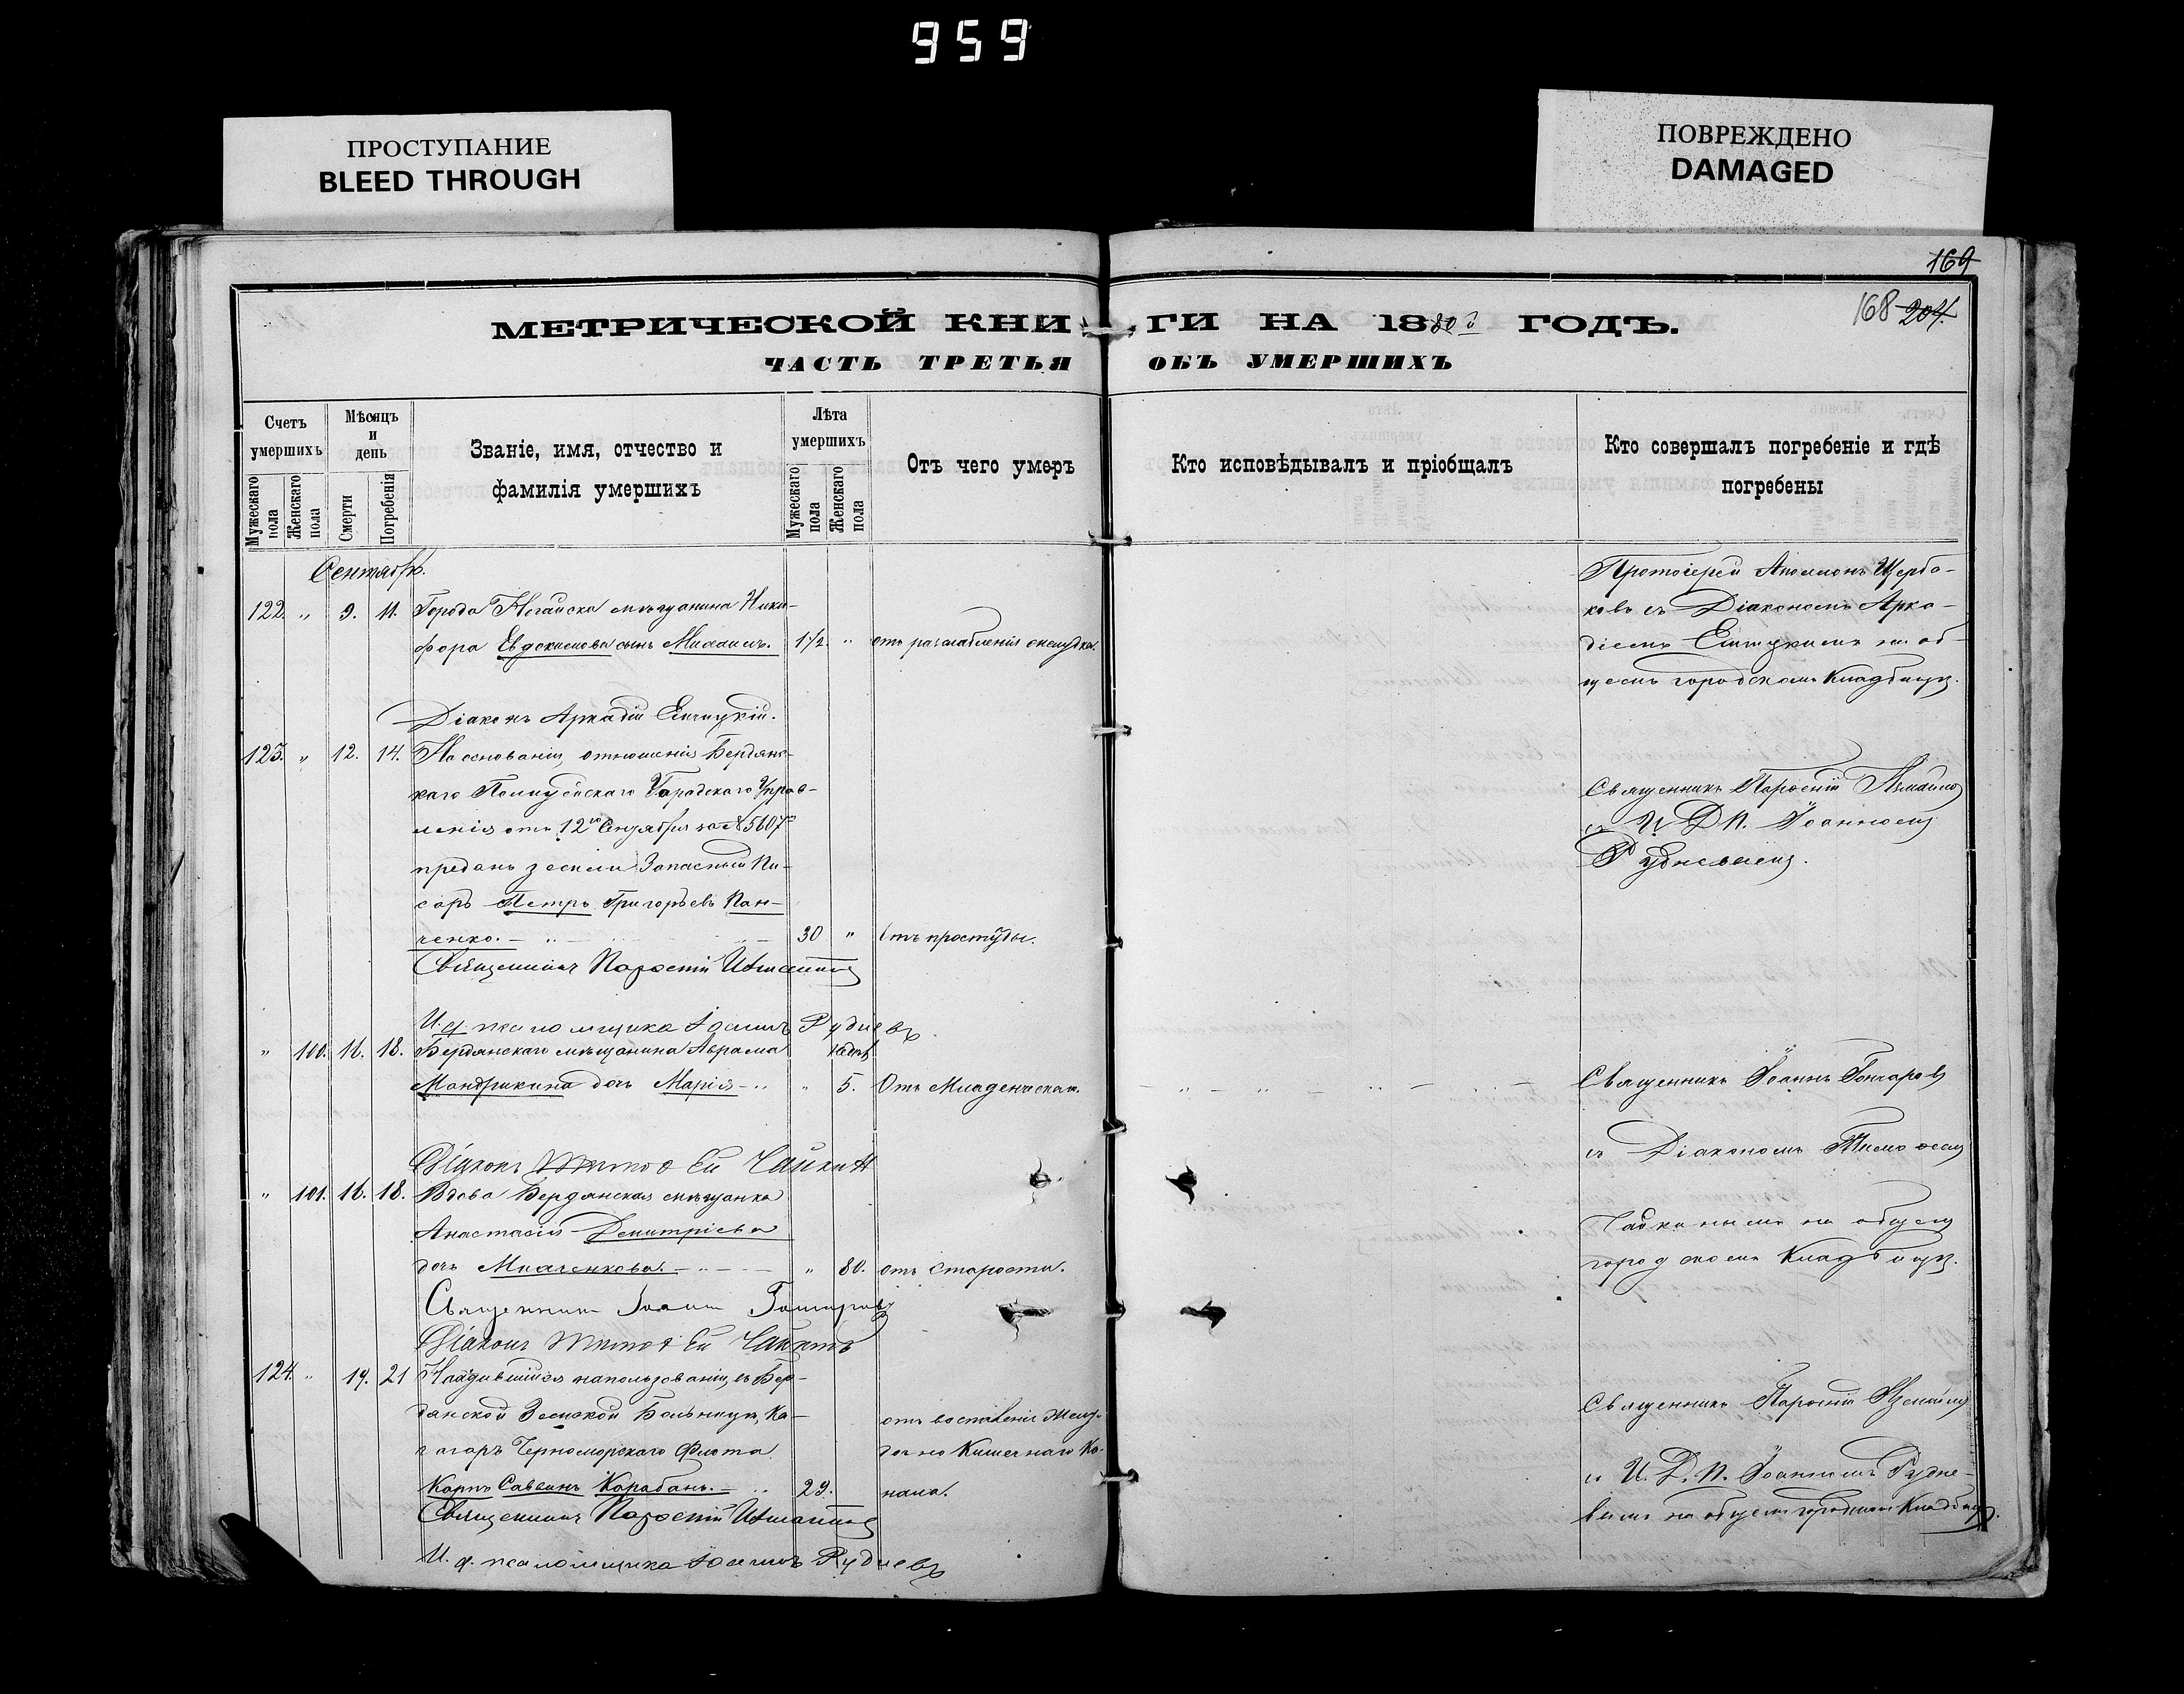 959
ПРОСТУПАНИЕ
BLEED THROUGH
ПОВРЕЖДЕНО
DAMAGED
169
168 204.
МЕТРИЧЕСКОЙ КНИГИ НА 1880й ГОДЪ.
ЧАСТЬ ТРЕТЬЯ ОБЪ УМЕРШИХЪ
Счетъ умершихъ
Мужескаго пола
Женскаго пола
Мѣсяцъ и день
Смерти
Погребенія
Званіе, имя, отчество и фамилія умершихъ
Лѣта умершихъ
Мужескаго пола
Женскаго пола
Отъ чего умеръ
Кто исповѣдывалъ и пріобщалъ
Кто совершалъ погребеніе и гдѣ погребены
Сентябрь.
122. " 9. 11. Города Ногайска мѣщанина Ники-
фора Евдокимова сынъ Михаилъ. 1 1/2. " отъ разслабленія желудка.
Протоіерей Аполлонъ Щерба-
ковъ съ Діакономъ Арка-
діемъ на об-
щемъ городскомъ Кладбищѣ.
Діаконъ Аркадій
123. " 12. 14. На основаніи отношенія Бердянс-
каго Полицейскаго Городского Управ-
ленія отъ 12го Сентября за № 5607мъ
преданъ земли Запасный Пи-
сарь Петръ Григорьевъ Пан-
ченко. 30 " Отъ простуды.
Священникъ Парѳеній Измаиловъ
съ И. Д. П. Іоанномъ
Рудневымъ.
Священникъ Парѳеній
И. д. псаломщика Іоаннъ Рудневъ
" 100. 16. 18. Бердянскаго мѣщанина Аврама
Мандрикина дочь Марія " недѣль 5. Отъ Младенческой.
Священникъ Іоаннъ Гончаровъ
съ Діакономъ Тимоѳеемъ
Чайкинымъ на общемъ
городскомъ Кладбищѣ.
Діаконъ Тимоѳей Чайкинъ
" 101. 16. 18. Вдова Бердянская мѣщанка
Анастасія Демитріева
дочь Мкаченкова. " 80. отъ старости.
Священникъ Іоаннъ Гончаровъ
Діаконъ Тимоѳей Чайкинъ
124. " 19. 21 Находившійся на пользованіи въ Бер-
дянской Земской Больницѣ, Ко-
чегаръ Черноморскаго Флота
Карпъ Саввинъ Карабанъ. 29.
отъ воспаленія Желу-
дочно Кишечнаго Ка-
нала.
Священникъ Парѳеній
съ И. Д. П. Іоанномъ Рудне-
вымъ на общемъ городскомъ Кладбищѣ.
Священникъ Парѳеній
И. д. псаломщика Іоаннъ Рудневъ